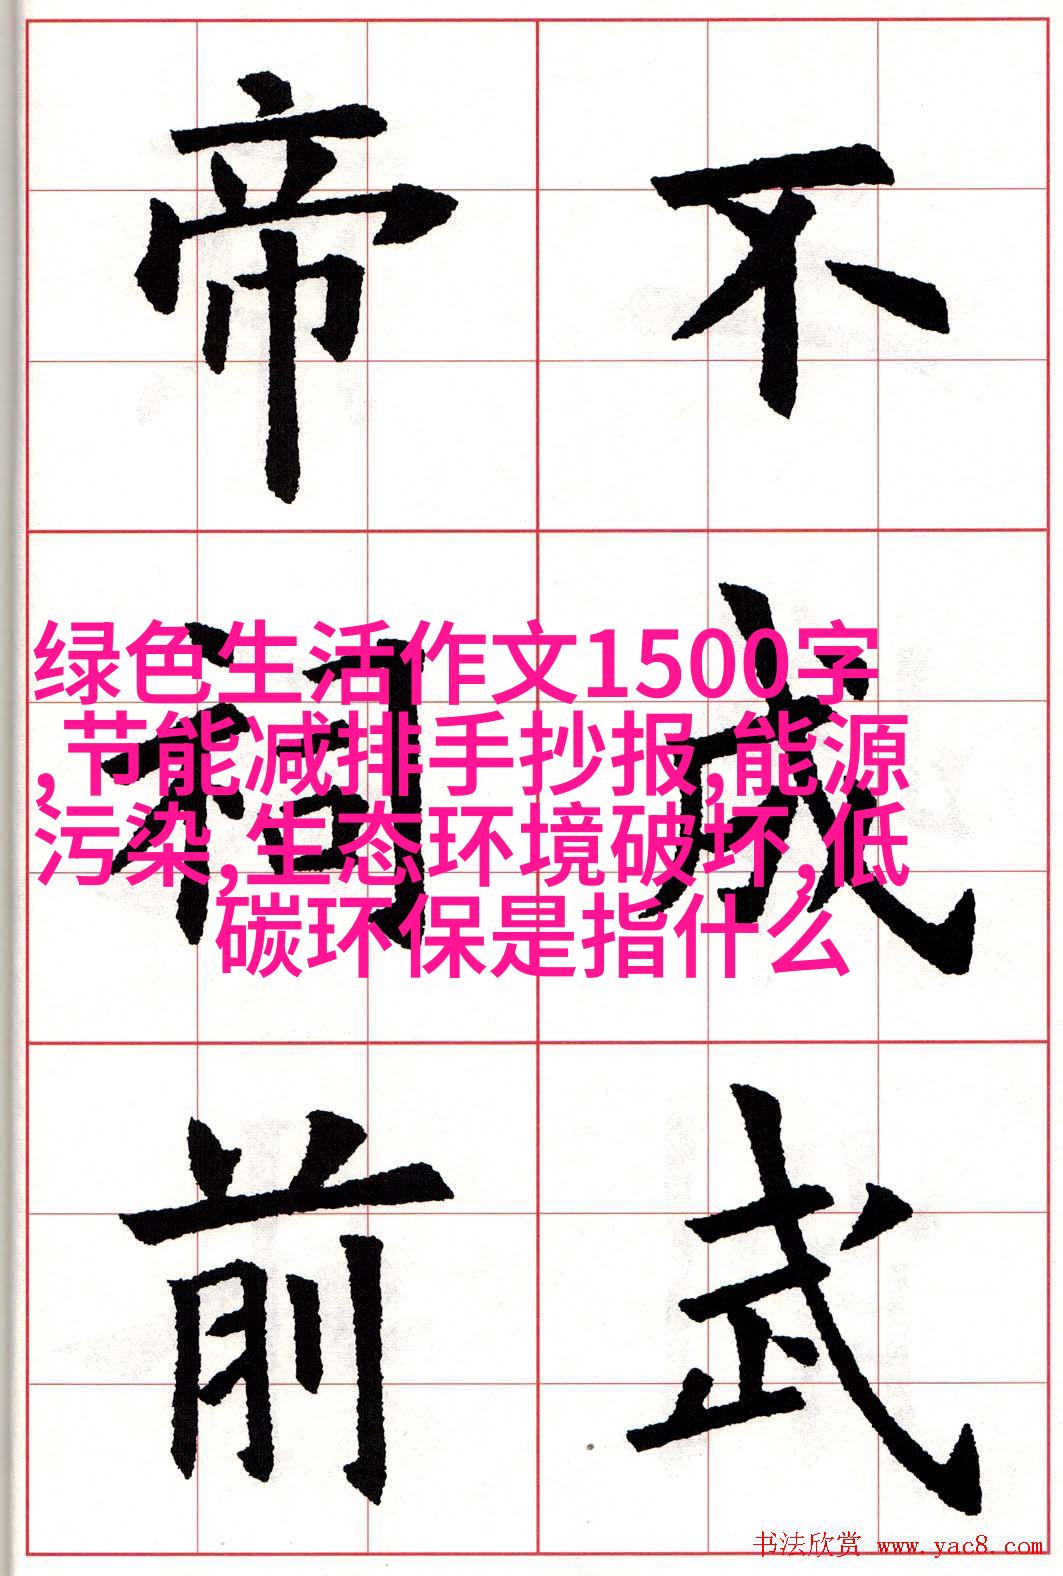 不成武
帝祠前
绿色生活作文1500字
,节能减排手抄报,能源
污染,生态环境破坏,低
碳环保是指什么
书法欣赏 www.yac8.com